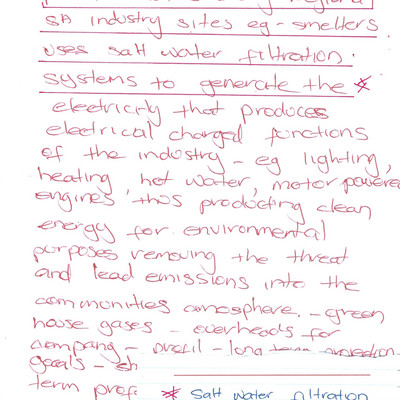 regional
SA industry sites eg - smelters
uses salt water filtration.
systems to generate the *
electricity that produces
electrical charged functions
of the industry - eg lighting,
heating hot water, motor powered
engines thus producting clean
energy for environmental
purposes removing the threat
and lead emissions into the
communities atmosphere. - green
house gases - overheads for
company - profit - long term projection
goals - sh
term prof
* Salt water filtration